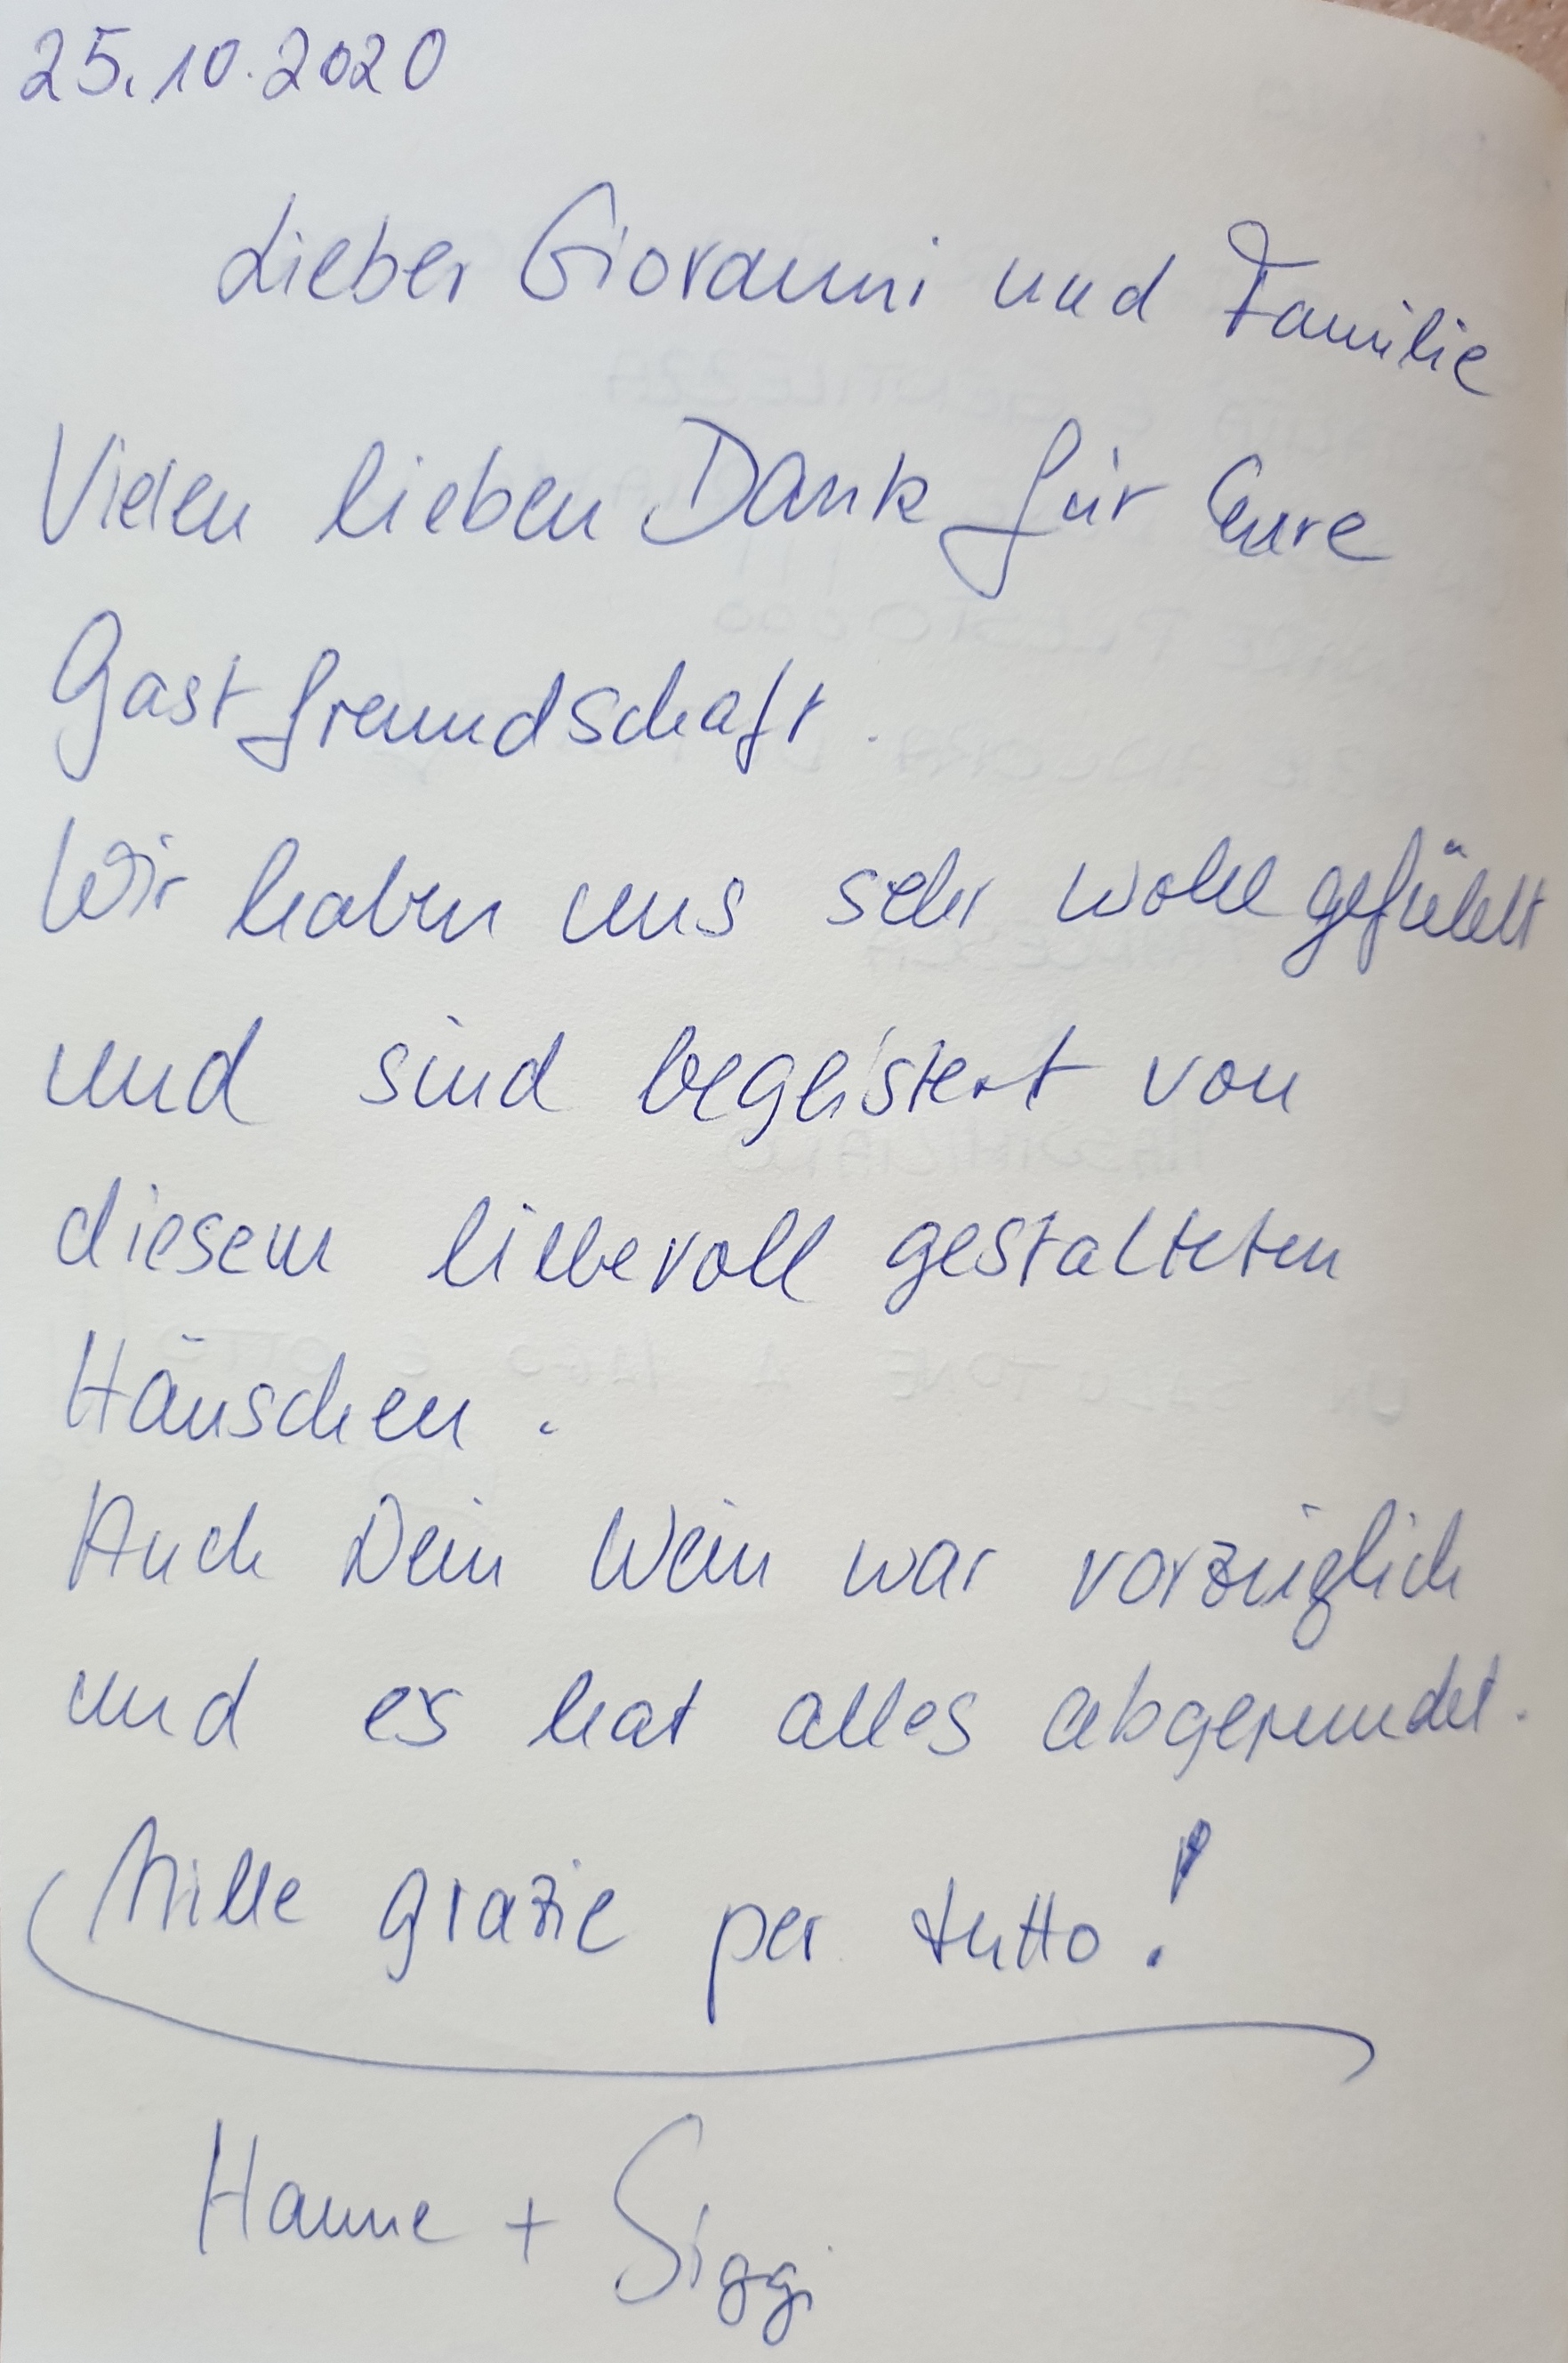 25.10.2020
Lieber Giovanni und Familie
Vielen lieben Dank für Eure
Gastfreundschaft.
Wir haben uns sehr wohl gefühlt
und sind begeistert von
diesem liebevoll gestalteten
Häuschen.
Auch Dein Wein war vorzüglich
und es hat alles abgerundet.
Mille grazie per tutto!
Hanne + Siggi